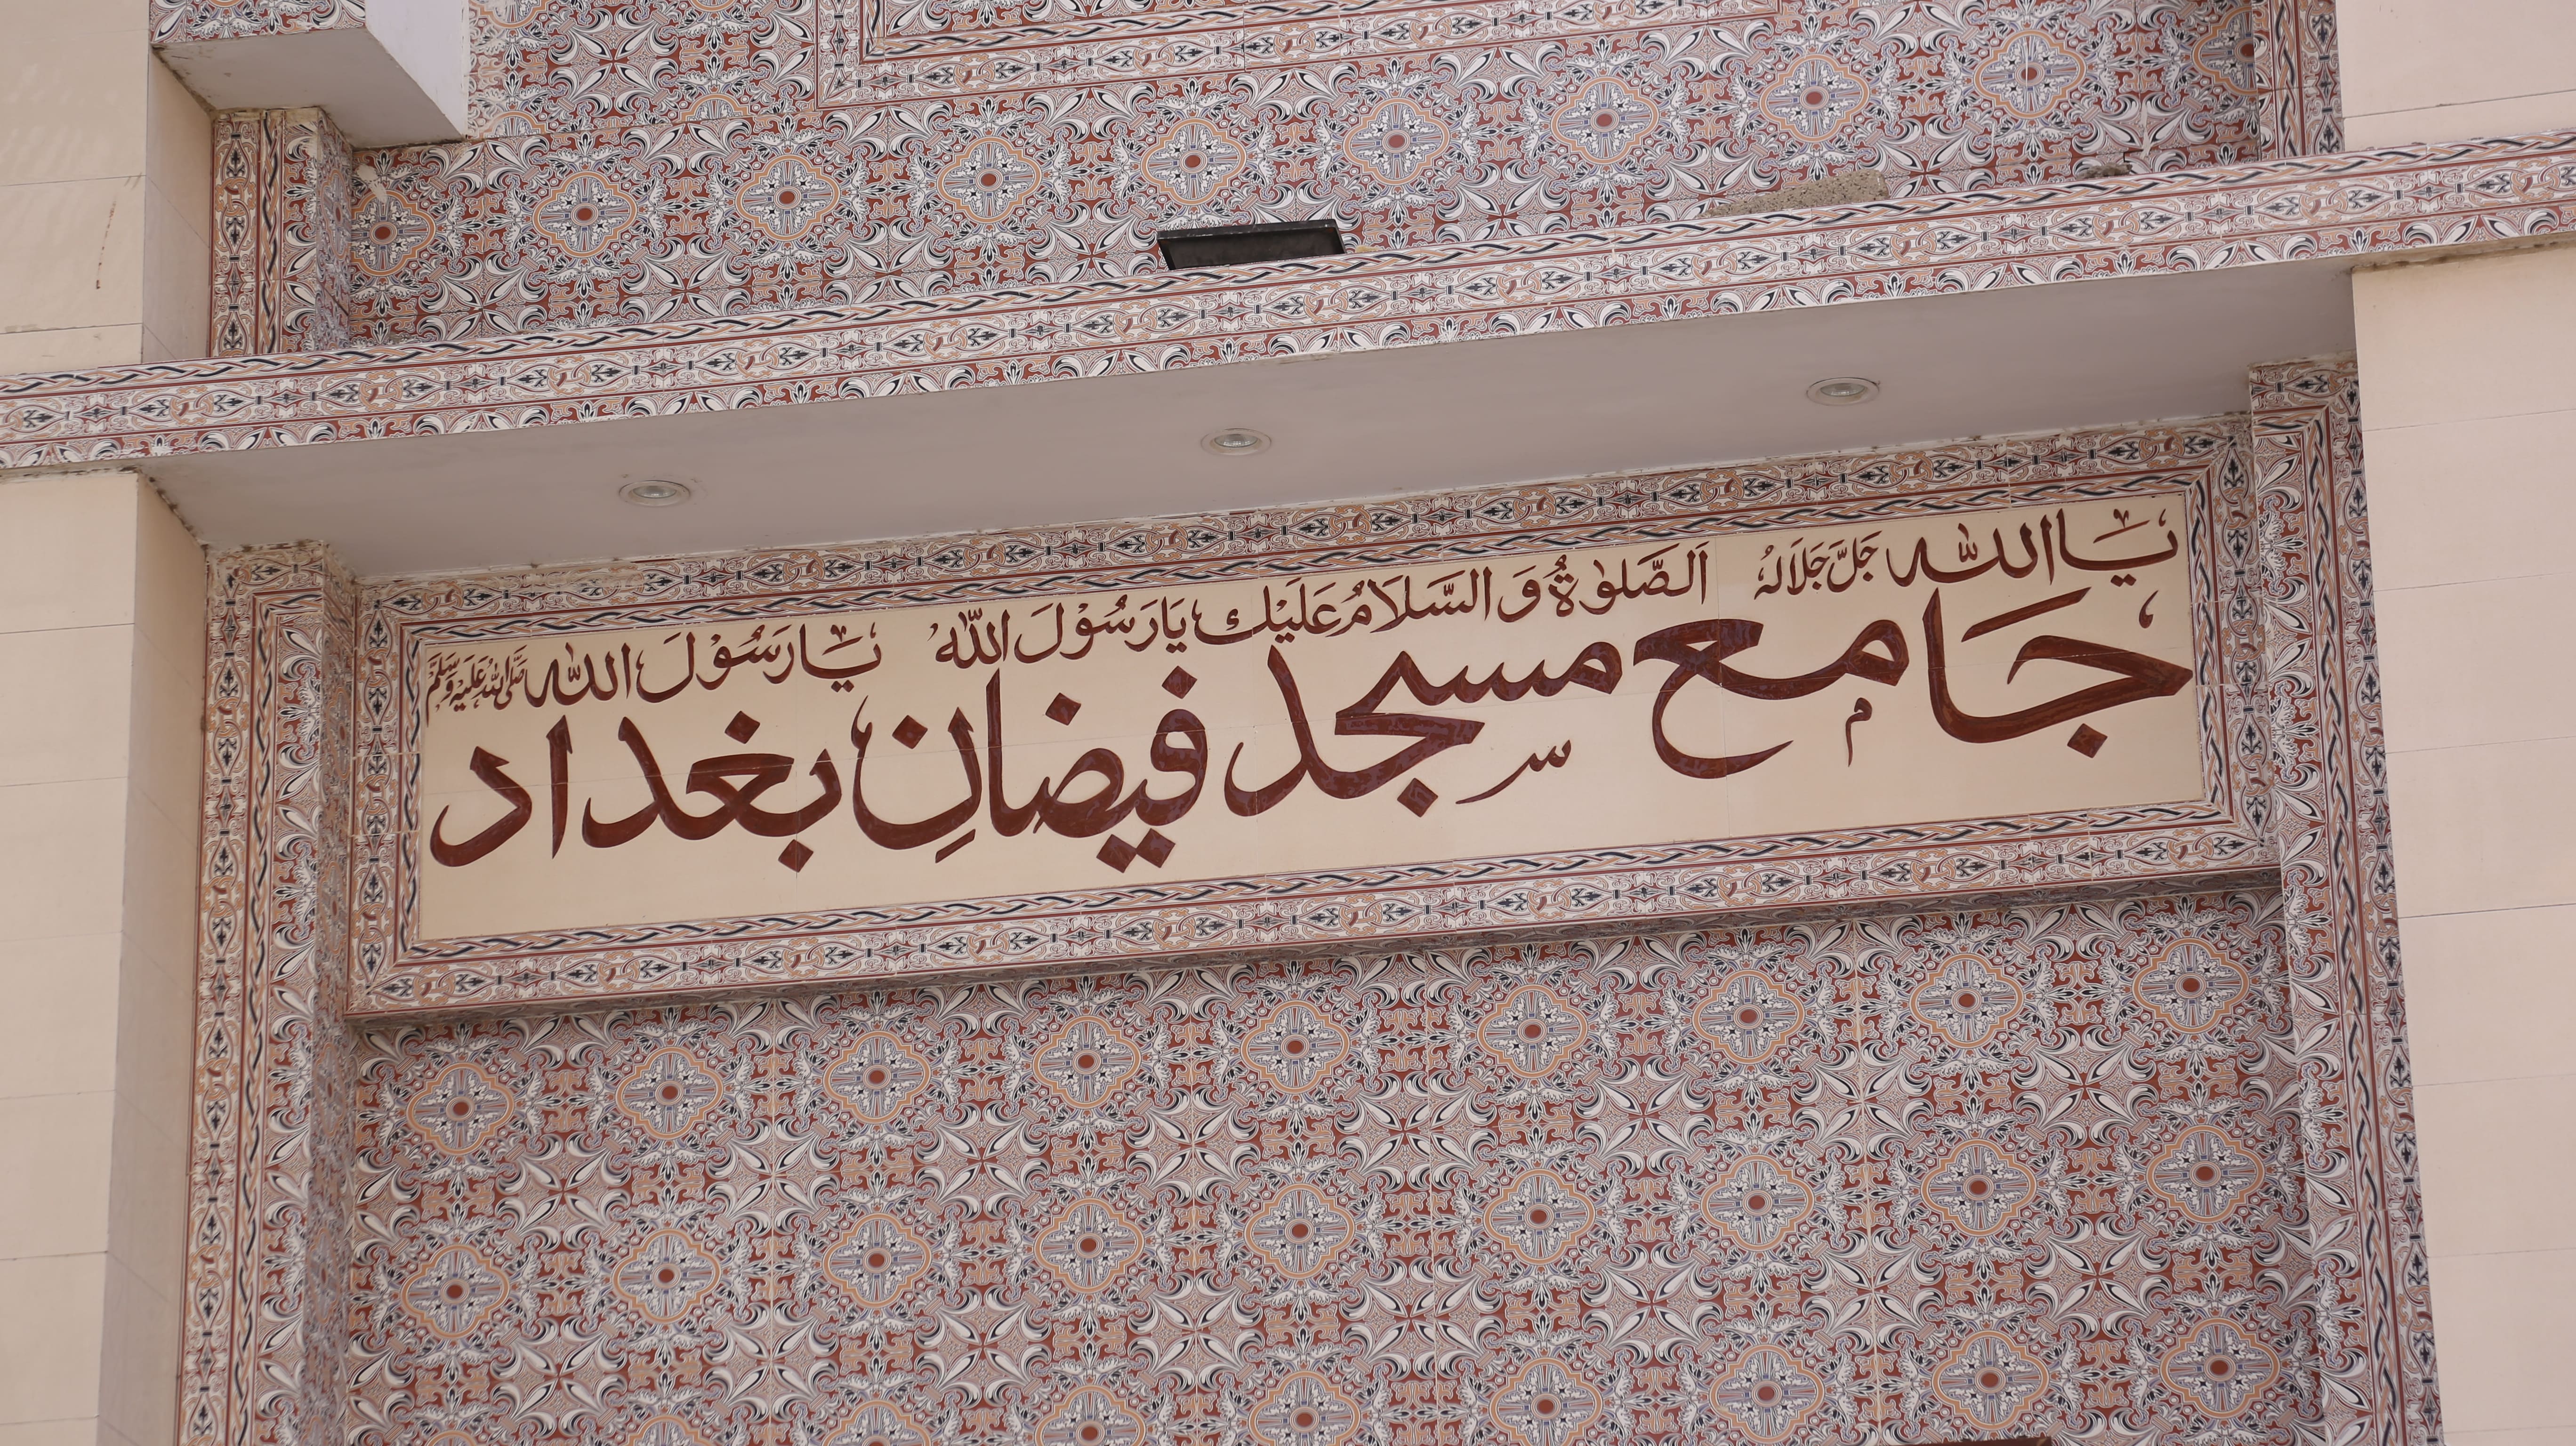 یَا اللہ جَلَّ جَلَالَہٗ اَلصَّلٰوۃُ وَ السَّلَامُ عَلَیْكَ یَا رَسُوْلَ اللّٰہ یَا رَسُوْلَ اللہ صَلَّی اللہُ عَلَیْہِ وَسَلَّمْ
جَامع مسجد فیضانِ بغداد